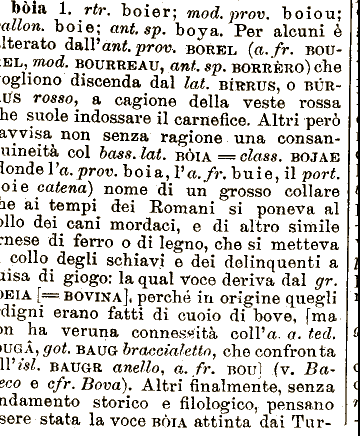 bòia 1. rtr. boier; mod. prov. boiou;
vallon. boie; ant. sp. boya. Per alcuni è
alterato dall'ant. prov. BOREL (a. fr. BOU-
REL, mod. BOURREAU, ant. sp. BORRÈRO) che
vogliono discenda dal lat. BÍRRUS, o BÚR-
RUS rosso, a cagione della veste rossa
che suole indossare il carnefice. Altri però
ravvisa non senza ragione una consan-
guineità col bass. lat. BÒIA = class. BOJAE
(donde l'a. prov. boia, l'a. fr. buie, il port.
boie catena) nome di un grosso collare
che ai tempi dei Romani si poneva al
collo dei cani mordaci, e di altro simile
arnese di ferro o di legno, che si metteva
a collo degli schiavi e dei delinquenti a
guisa di giogo: la qual voce deriva dal gr.
BOEIA [= BOVINA], perché in origine quegli
ordigni erano fatti di cuoio di bove, [ma
non ha veruna connessità coll'a. a. ted.
BOUGÂ, got. BAUG braccialetto, che confronta
all'isl. BAUGR anello, a. fr. BOU] (v. Ba-
ieco e cfr. Bova). Altri finalmente, senza
fondamento storico e filologico, pensano
essere stata la voce BÒIA attinta dai Tur-